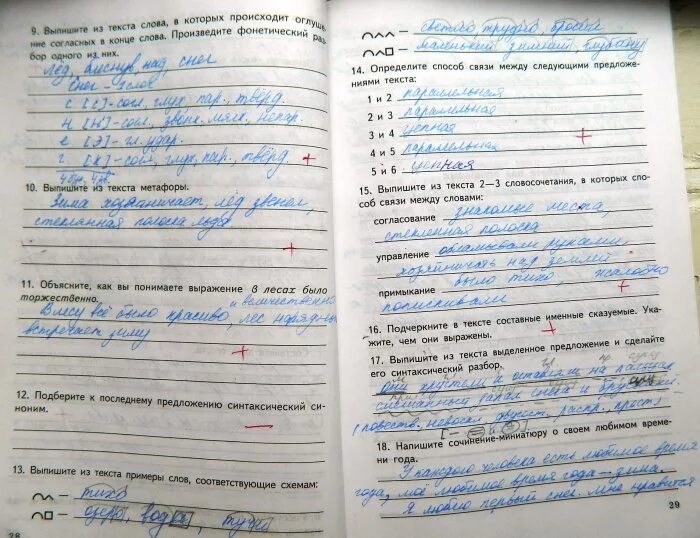 9. Выпишите из текста слова, в которых происходит оглуше-
ние согласных в конце слова. Произведите фонетический раз-
бор одного из них.
Лёд, блеснув, над, снег
Снег – 1 слог
с [с] - согл., глух., пар., твёрд.
н [н'] - согл., звонк., мягк., непар.
е [э] - гл., удар.
г [к] - согл., глух., пар., твёрд. +
4 бук., 4 зв.
10. Выпишите из текста метафоры.
Зима хозяйничает, лёд звенел,
стеклянная полоска льда
+
11. Объясните, как вы понимаете выражение в лесах было
торжественно.
и величественно
В лесу всё было красиво, лес нарядный
встречает зиму
+
12. Подберите к последнему предложению синтаксический си-
ноним.
13. Выпишите из текста примеры слов, соответствующие схемам:
– тихо
– озеро, вода, туча
28
– светово, трудно, бросил
– маленький зимний, глубину
14. Определите способ связи между следующими предложе-
ниями текста:
1 и 2 параллельная
2 и 3 параллельная
3 и 4 цепная
4 и 5 параллельная
5 и 6 цепная
+
15. Выпишите из текста 2—3 словосочетания, в которых спо-
соб связи между словами:
согласование знакомые места,
стеклянная полоска
управление руками,
хозяйничать над землёй
примыкание было тихо жалобно
попискивали +
16. Подчеркните в тексте составные именные сказуемые. Ука-
жите, чем они выражены. +
17. Выпишите из текста выделенное предложение и сделайте
его синтаксический разбор.
Они хрустели и оставляли на пальцах
смешанный запах снега и брусники.
(повеств., невоскл., распр., прост.)
18. Напишите сочинение-миниатюру о своем любимом време-
ни года.
У каждого человека есть любимое время
года, моё любимое время года – зима.
Я люблю первый снег. Мне нравится
29